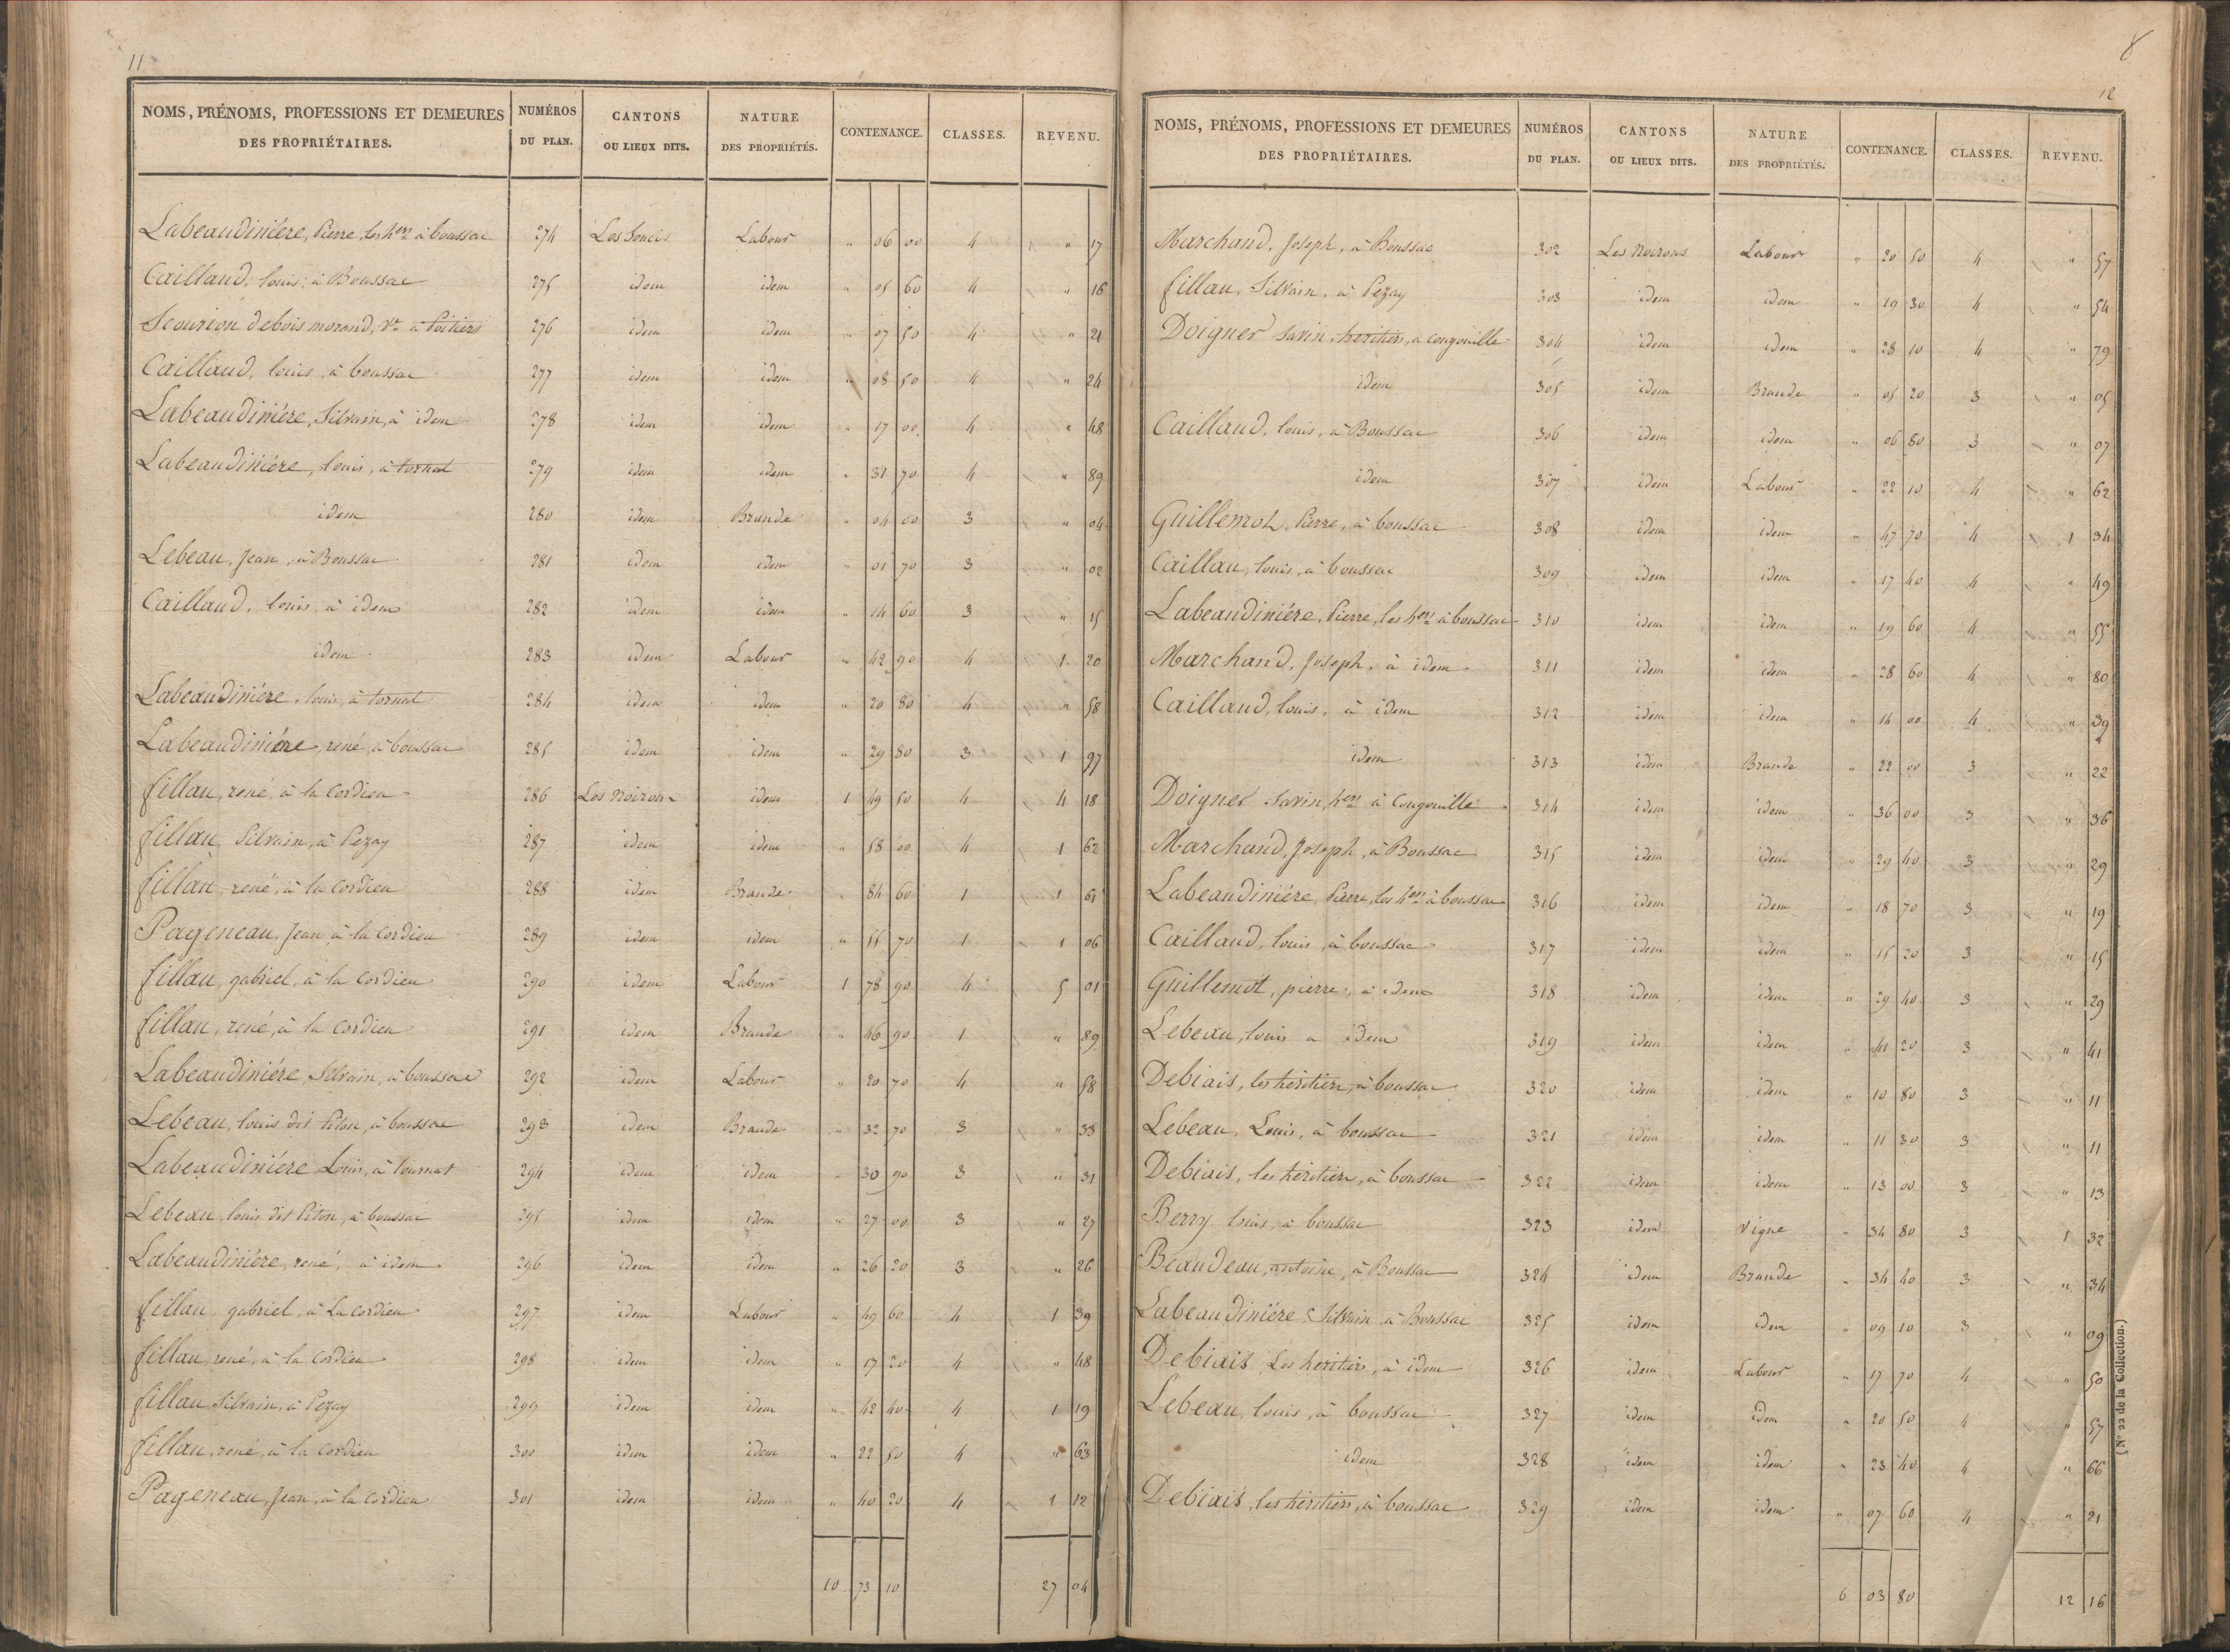 11
NOMS, PRÉNOMS, PROFESSIONS ET DEMEURES DES PROPRIÉTAIRES. NUMÉROS DU PLAN. CANTONS OU LIEUX DITS. NATURE DES PROPRIÉTÉS. CONTENANCE. CLASSES. REVENU.
Labeaudiniére, Pierre, les hers à boussac 274 Les Soucis Labour " 06 00 4 " 17
Caillaud, louis, à Boussac 275 idem idem " 05 60 4 " 16
Scourion debois morand, Ve à Poitiers 276 idem idem " 07 50 4 " 21
Caillaud, louis, à boussac 277 idem idem " 08 50 4 " 24
Labeaudiniére, Silvain, à idem 278 idem idem " 17 00 4 " 48
Labeaudiniére, louis, à tornat 279 idem idem " 31 70 4 " 89
idem 280 idem Brande " 04 00 3 " 04
Lebeau, Jean, à Boussac 281 idem idem " 01 70 3 " 02
Caillaud, louis, à idem 282 idem idem " 14 60 3 " 15
idem 283 idem Labour " 42 90 4 1 20
Labeaudiniére, louis, à tornat 284 idem idem " 20 80 4 " 58
Labeaudiniére, rené, à boussac 285 idem idem " 29 80 3 1 97
fillau, rené, à la Cordieu 286 Les Noirons idem 1 49 50 4 4 18
fillau, Silvain, à Pezay 287 idem idem " 58 00 4 1 62
fillau, rené, à la Cordieu 288 idem Brande " 84 60 1 1 61
Pageneau, Jean, à la Cordieu 289 idem idem " 55 70 1 1 06
fillau, gabriel, à la Cordieu 290 idem Labour 1 78 90 4 5 01
fillau, rené, à la Cordieu 291 idem Brande " 46 90 1 " 89
Labeaudiniére, Silvain, à boussac 292 idem Labour " 20 70 4 " 58
Lebeau, louis dit Piton, à boussac 293 idem Brande " 32 70 3 " 33
Labeaudiniére Louis, à tournat 294 idem idem " 30 90 3 " 31
Lebeau, louis dit Piton, à boussac 295 idem idem " 27 00 3 " 27
Labeaudiniére, rené, à idem 296 idem idem " 26 20 3 " 26
fillau, gabriel, à La Cordieu 297 idem Labour " 49 60 4 1 39
fillau, rené, à la Cordieu 298 idem idem " 17 20 4 " 48
fillau, Silvain, à Pezay 299 idem idem " 42 40 4 1 19
fillau, rené, à la Cordieu 300 idem idem " 22 50 4 " 63
Pageneau, Jean, à la Cordieu 301 idem idem " 40 20 4 1 12
10 73 10 27 04
8
12
NOMS, PRÉNOMS, PROFESSIONS ET DEMEURES DES PROPRIÉTAIRES. NUMÉROS DU PLAN. CANTONS OU LIEUX DITS. NATURE DES PROPRIÉTÉS. CONTENANCE. CLASSES. REVENU.
Marchand, Joseph, à Boussac 302 Les Noirons Labour " 20 50 4 " 57
fillau, Silvain, à Pezay 303 idem idem " 19 30 4 " 54
Doigner Savin, héritiers, à Cougouille 304 idem idem " 28 10 4 " 79
idem 305 idem Brande " 05 20 3 " 05
Caillaud, louis, à Boussac 306 idem idem " 06 80 3 " 07
idem 307 idem Labour " 22 10 4 " 62
Guillemot, Pierre, à boussac 308 idem idem " 47 70 4 1 34
Caillau, louis, à boussac 309 idem idem " 17 40 4 " 49
Labeaudiniére, Pierre, les hers à boussac 310 idem idem " 19 60 4 " 55
Marchand, Joseph, à idem 311 idem idem " 28 60 4 " 80
Caillaud, louis, à idem 312 idem idem " 14 00 4 " 39
idem 313 idem Brande " 22 00 3 " 22
Doigner Savin, hers à Cougouille 314 idem idem " 36 00 3 " 36
Marchand, Joseph, à Boussac 315 idem idem " 29 40 3 " 29
Labeaudiniére, Pierre, les hers à boussac 316 idem idem " 18 70 3 " 19
Caillaud, louis, à boussac 317 idem idem " 15 20 3 " 15
Guillemot, pierre, à idem 318 idem idem " 29 40 3 " 29
Lebeau, louis à idem 319 idem idem " 41 20 3 " 41
Debiais, les héritiers, à boussac 320 idem idem " 10 80 3 " 11
Lebeau, Louis, à boussac 321 idem idem " 11 30 3 " 11
Debiais, les héritiers, à boussac 322 idem idem " 13 00 3 " 13
Berry louis, à boussac 323 idem Vigne " 34 80 3 1 32
Beaudeau, antoine, à Boussac 324 idem Brande " 34 40 3 " 34
Labeaudiniére Silvain à Boussac 325 idem idem " 09 10 3 " 09
Debiais Les héritiers, à idem 326 idem Labour " 17 70 4 " 50
Lebeau, louis, à boussac 327 idem idem " 20 50 4 " 57
idem 328 idem idem " 23 40 4 " 66
Debiais, les héritiers, à boussac 329 idem idem " 07 60 4 " 21
6 03 80 12 16
(N° 22 de la Collection.)